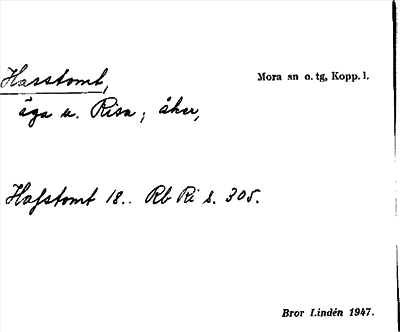 Hasstomt,
Mora sn o. tg, Kopp. l.
äga u. Risa; åker,
Hafstomt 18.. Rb Ri s. 305.
Bror Lindén 1947.